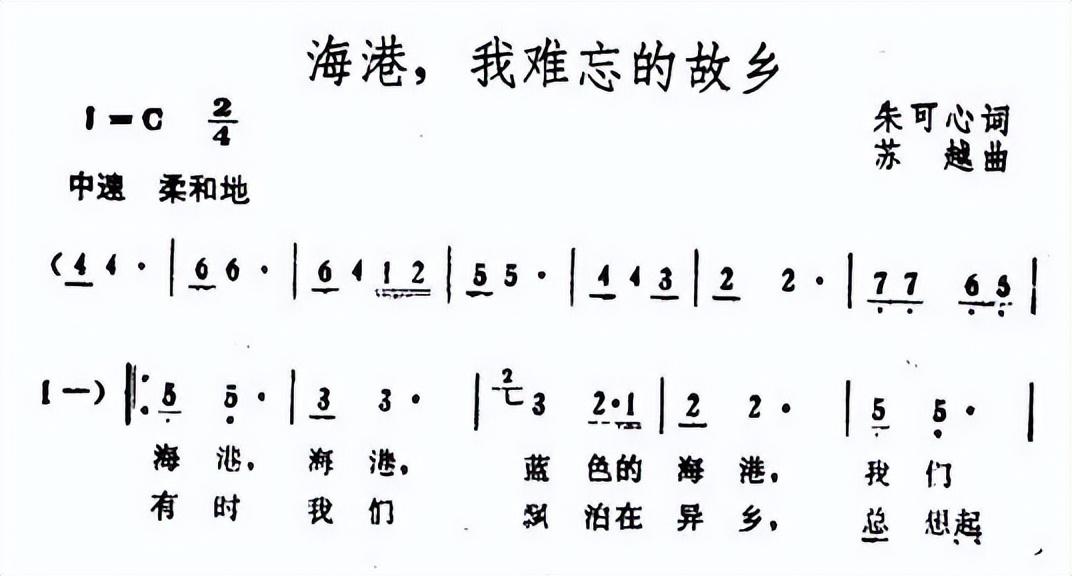 海港，我难忘的故乡
1=C 2/4
朱可心词
苏越曲
中速 柔和地
(4 4· | 6 6· | 6 4 1 2 | 5 5· | 4 4 3 | 2 2· | 7 7 6 5 |
1 —) ‖: 5 5· | 3 3· | 2 3 2·1 | 2 2· | 5 5· |
海港，海港，蓝色的海港，我们
有时我们飘泊在异乡，总想起